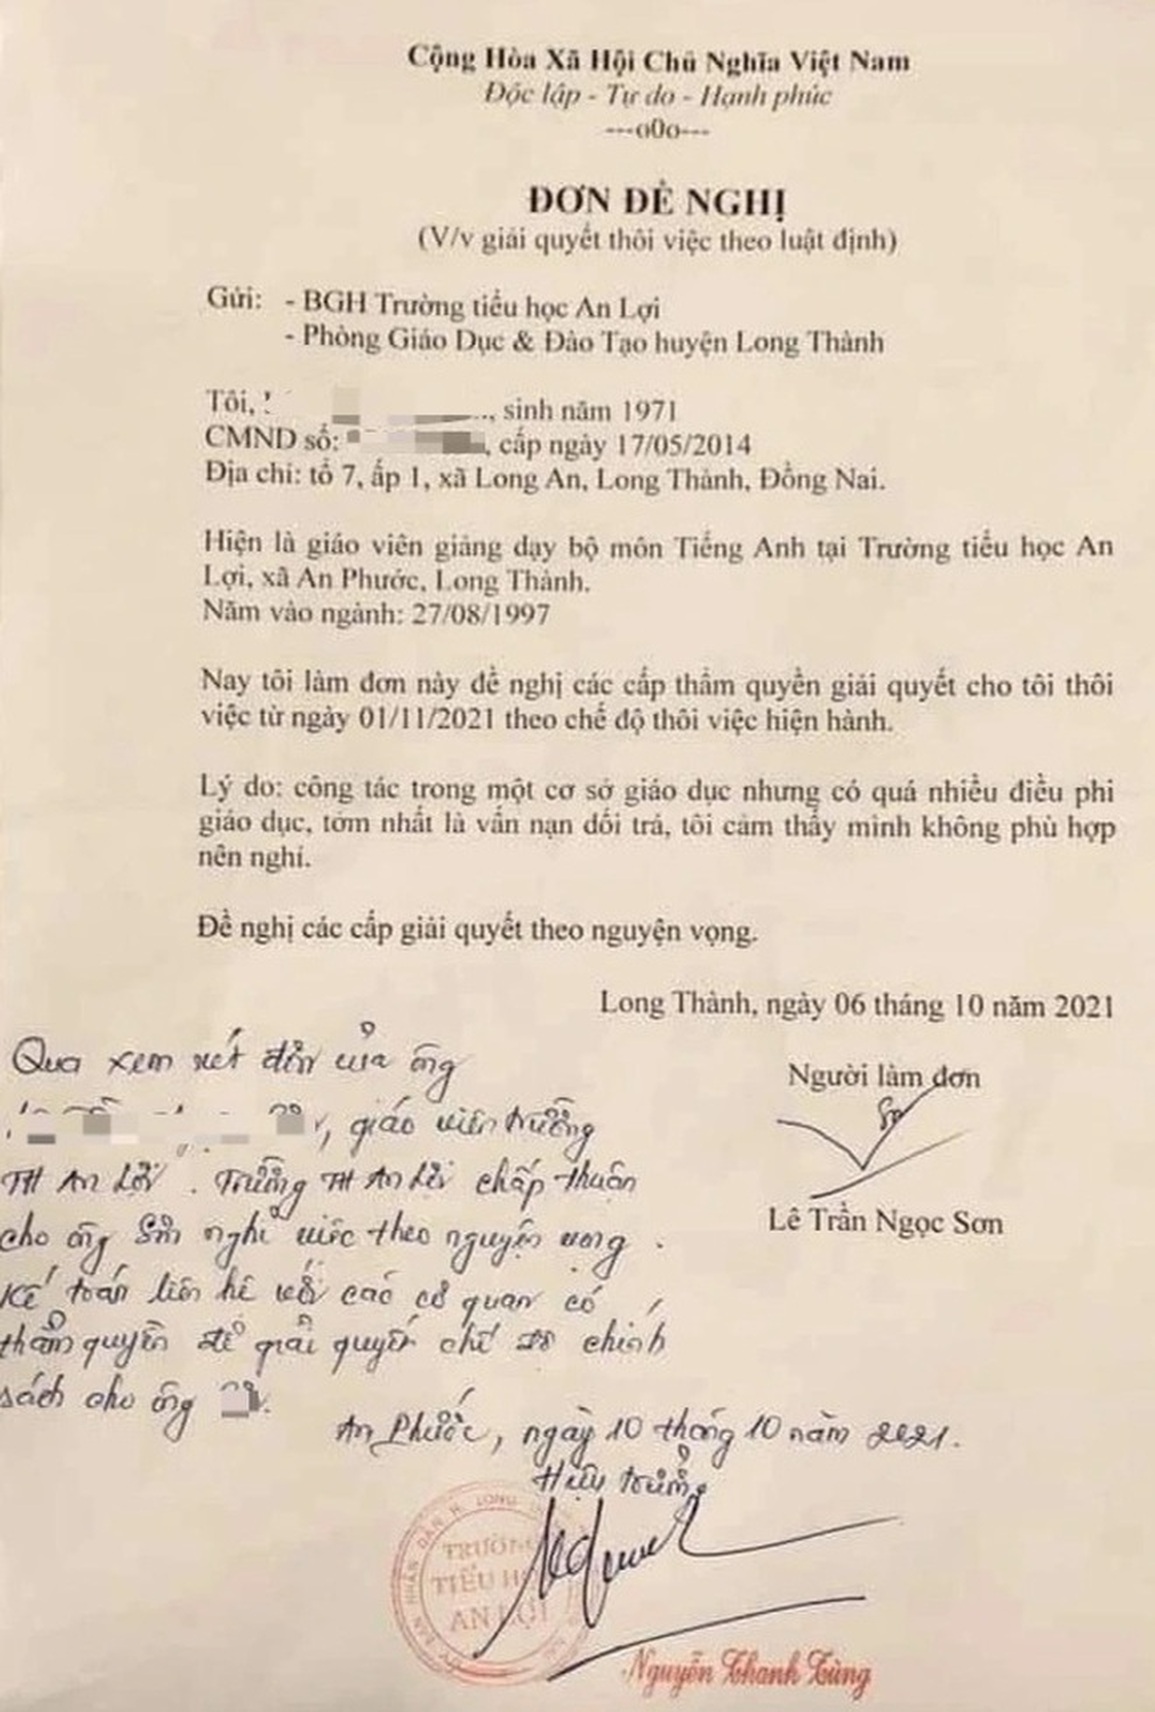 Cộng Hòa Xã Hội Chủ Nghĩa Việt Nam
Độc lập - Tự do - Hạnh phúc
---o0o---
ĐƠN ĐỀ NGHỊ
(V/v giải quyết thôi việc theo luật định)
Gửi: - BGH Trường tiểu học An Lợi
- Phòng Giáo Dục & Đào Tạo huyện Long Thành
Tôi, ..., sinh năm 1971
CMND số: , cấp ngày 17/05/2014
Địa chỉ: tổ 7, ấp 1, xã Long An, Long Thành, Đồng Nai.
Hiện là giáo viên giảng dạy bộ môn Tiếng Anh tại Trường tiểu học An
Lợi, xã An Phước, Long Thành.
Năm vào ngành: 27/08/1997
Nay tôi làm đơn này đề nghị các cấp thẩm quyền giải quyết cho tôi thôi
việc từ ngày 01/11/2021 theo chế độ thôi việc hiện hành.
Lý do: công tác trong một cơ sở giáo dục nhưng có quá nhiều điều phi
giáo dục, tởm nhất là vấn nạn dối trá, tôi cảm thấy mình không phù hợp
nên nghỉ.
Đề nghị các cấp giải quyết theo nguyện vọng.
Long Thành, ngày 06 tháng 10 năm 2021
Người làm đơn
Sơn
Lê Trần Ngọc Sơn
Qua xem xét đơn của ông
, giáo viên trường
TH An Lợi. Trường TH An Lợi chấp thuận
cho ông Sơn nghỉ việc theo nguyện vọng.
Kế toán liên hệ với các cơ quan có
thẩm quyền để giải quyết chế độ chính
sách cho ông .
An Phước, ngày 10 tháng 10 năm 2021.
Hiệu trưởng
ỦY BAN NHÂN DÂN H. LONG
TRƯỜNG
TIỂU HỌC
AN LỢI
Nguyễn Thanh Tùng